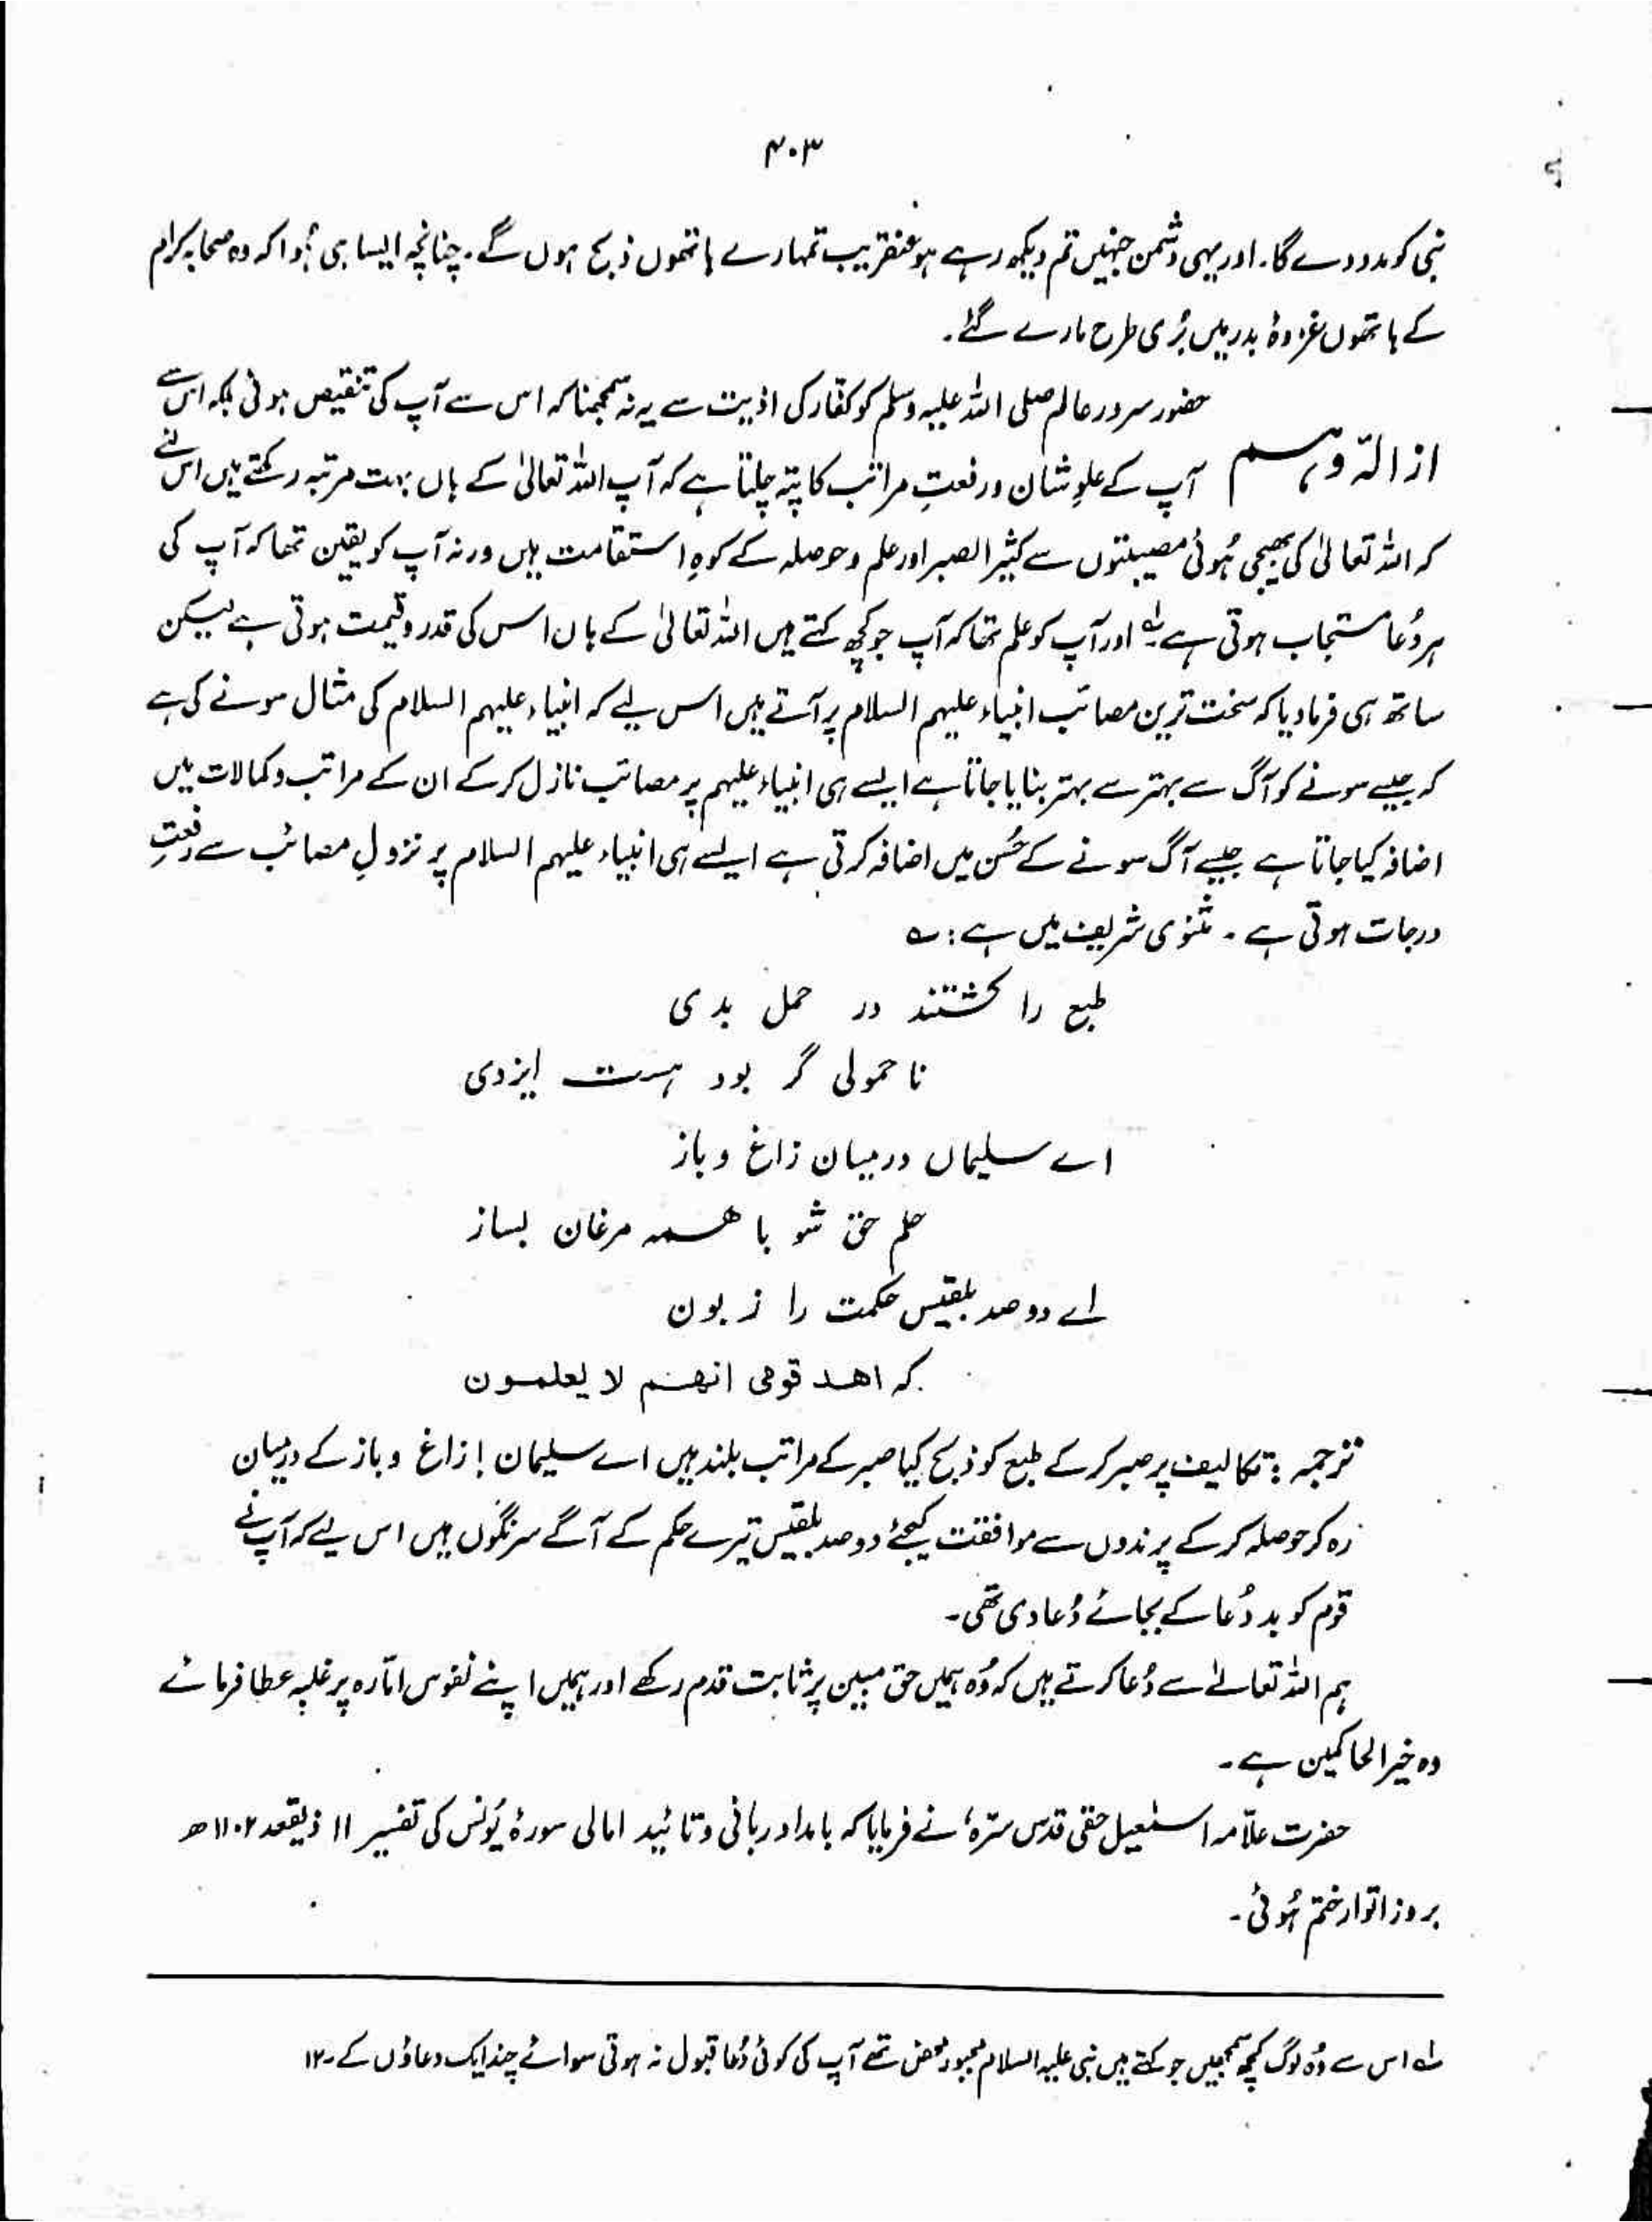 ۴۰۳
نبی کو مدد دے گا۔ اور یہی دشمن جنہیں تم دیکھ رہے ہو عنقریب تمہارے ہاتھوں ذبح ہوں گے۔ چنانچہ ایسا ہی ہُوا کہ وہ صحابہ کرام
کے ہاتھوں غزوۂ بدر میں بُری طرح مارے گئے۔
حضور سرور عالم صلی اللہ علیہ وسلم کو کفّار کی اذیت سے یہ نہ سمجھنا کہ اس سے آپ کی تنقیص ہوئی بلکہ اس سے
ازالۂ وہم آپ کے علوِ شان و رفعتِ مراتب کا پتہ چلتا ہے کہ آپ اللہ تعالیٰ کے ہاں بہت مرتبہ رکھتے ہیں اس لئے
کہ اللہ تعالیٰ کی بھیجی ہُوئی مصیبتوں سے کثیر الصبر اور علم و حوصلہ کے کوہِ استقامت ہیں ورنہ آپ کو یقین تھا کہ آپ کی
ہر دُعا مستجاب ہوتی ہے لہ اور آپ کو علم تھا کہ آپ جو کچھ کہتے ہیں اللہ تعالیٰ کے ہاں اس کی قدر و قیمت ہوتی ہے لیکن
ساتھ ہی فرما دیا کہ سخت ترین مصائب انبیاء علیہم السلام پر آتے ہیں اس لیے کہ انبیاء علیہم السلام کی مثال سونے کی ہے
کہ جیسے سونے کو آگ سے بہتر سے بہتر بنایا جاتا ہے ایسے ہی انبیاء علیہم پر مصائب نازل کر کے ان کے مراتب و کمالات میں
اضافہ کیا جاتا ہے جیسے آگ سونے کے حُسن میں اضافہ کرتی ہے ایسے ہی انبیاء علیہم السلام پر نزولِ مصائب سے رفعتِ
درجات ہوتی ہے۔ مثنوی شریف میں ہے: ؎
طبع را کشتند در حمل بدی
نا حمولی گر بود ہست ایزدی
اے سلیماں درمیان زاغ و باز
حلم حق شو با ھمہ مرغان بساز
اے دو صد بلقیس حکمت را زبون
کہ اھد قومی انھم لا یعلمون
ترجمہ: تکالیف پر صبر کر کے طبع کو ذبح کیا صبر کے مراتب بلند ہیں اے سلیمان! زاغ و باز کے درمیان
رہ کر حوصلہ کر کے پرندوں سے موافقت کیجئے دو صد بلقیس تیرے حکم کے آگے سرنگوں ہیں اس لیے کہ آپ نے
قوم کو بد دُعا کے بجائے دُعا دی تھی۔
ہم اللہ تعالےٰ سے دُعا کرتے ہیں کہ وُہ ہمیں حق مبین پر ثابت قدم رکھے اور ہمیں اپنے نفوس امّارہ پر غلبہ عطا فرمائے
وہ خیر الحاکمین ہے۔
حضرت علاّمہ اسمٰعیل حقی قدس سترہٗ نے فرمایا کہ بامداد ربانی و تائید امالی سورۂ یُونس کی تفسیر ۱۱ ذیقعد ۱۱۰۲ھ
بروز اتوار ختم ہُوئی۔
لہ اس سے وُہ لوگ کچھ سمجھیں جو کہتے ہیں نبی علیہ السلام مجبور محض تھے آپ کی کوئی دُعا قبول نہ ہوتی سوائے چند ایک دعاؤں کے۔ ۱۲